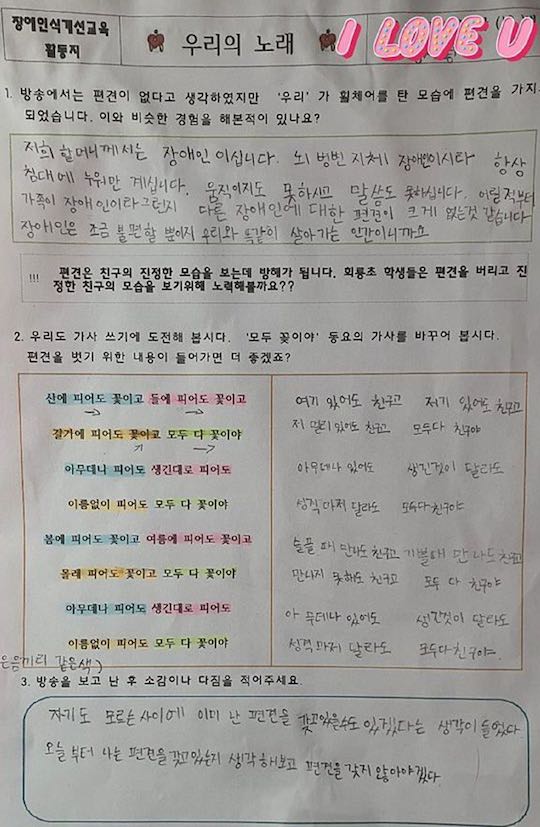 장애인식개선교육
활동지
우리의 노래
I LOVE U
1. 방송에서는 편견이 없다고 생각하였지만 '우리' 가 휠체어를 탄 모습에 편견을 가지
되었습니다. 이와 비슷한 경험을 해본적이 있나요?
저희 할머니께서는 장애인 이십니다. 뇌 병변 지체 장애인이시라 항상
침대에 누워만 계십니다. 움직이지도 못하시고 말씀도 못하십니다. 어릴적부터
가족이 장애인이라 그런지 다른 장애인에 대한 편견이 크게 없는것 같습니다
장애인은 조금 불편할 뿐이지 우리와 똑같히 살아가는 인간이니까요
!!! 편견은 친구의 진정한 모습을 보는데 방해가 됩니다. 회룡초 학생들은 편견을 버리고 진
정한 친구의 모습을 보기위해 노력해볼까요??
2. 우리도 가사 쓰기에 도전해 봅시다. '모두 꽃이야' 동요의 가사를 바꾸어 봅시다.
편견을 벗기 위한 내용이 들어가면 더 좋겠죠?
산에 피어도 꽃이고 들에 피어도 꽃이고
길가에 피어도 꽃이고 모두 다 꽃이야
아무데나 피어도 생긴대로 피어도
이름없이 피어도 모두 다 꽃이야
봄에 피어도 꽃이고 여름에 피어도 꽃이고
몰래 피어도 꽃이고 모두 다 꽃이야
아무데나 피어도 생긴대로 피어도
이름없이 피어도 모두 다 꽃이야
은음끼리 같은색)
여기 있어도 친구고 저기 있어도 친구고
저 멀리 있어도 친구고 모두다 친구야
아무데나 있어도 생긴것이 달라도
성격마저 달라도 모두다 친구야
슬플 때 만나도 친구고 기쁠때 만나도 친구고
만나지 못해도 친구고 모두 다 친구야
아무데나 있어도 생긴것이 달라도
성격 마저 달라도 모두다 친구야.
3. 방송을 보고 난 후 소감이나 다짐을 적어주세요.
자기도 모르는 사이에 이미 난 편견을 갖고있을수도 있겠다는 생각이 들었다
오늘 부터 나는 편견을 갖고있는지 생각 해보고 편견을 갖지 않아야겠다.